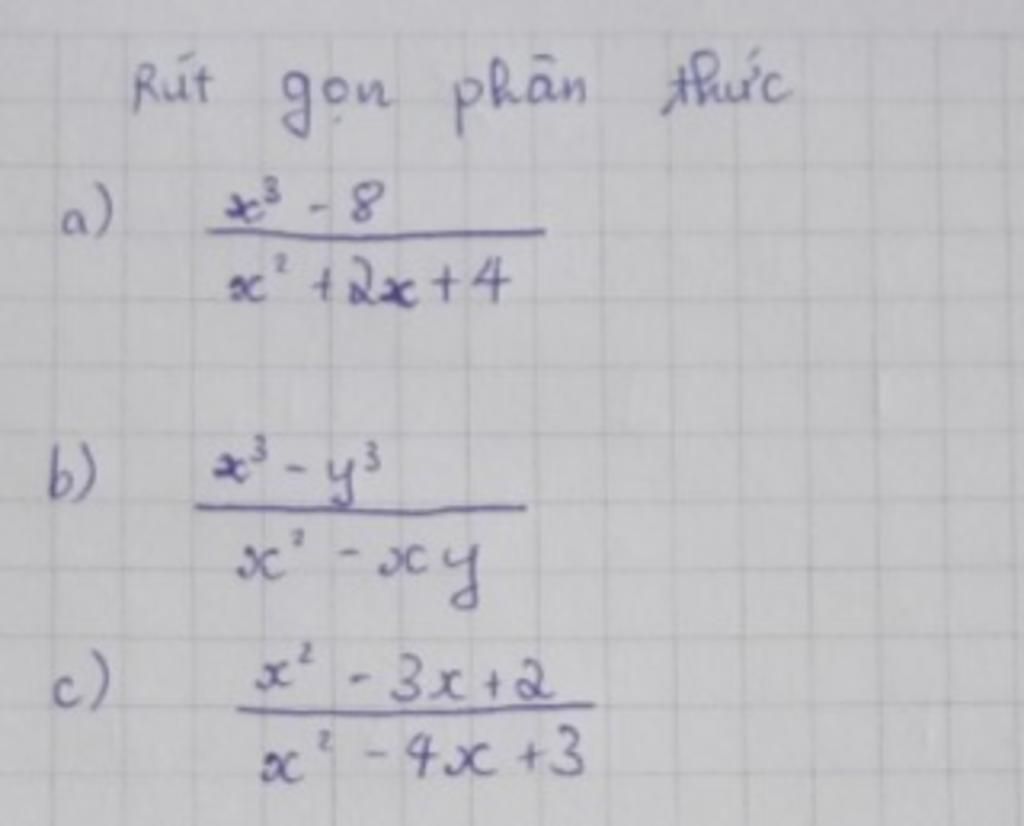 Rút gọn phân thức
a) x³ - 8
x² + 2x + 4
b) x³ - y³
x² - xy
c) x² - 3x + 2
x² - 4x + 3